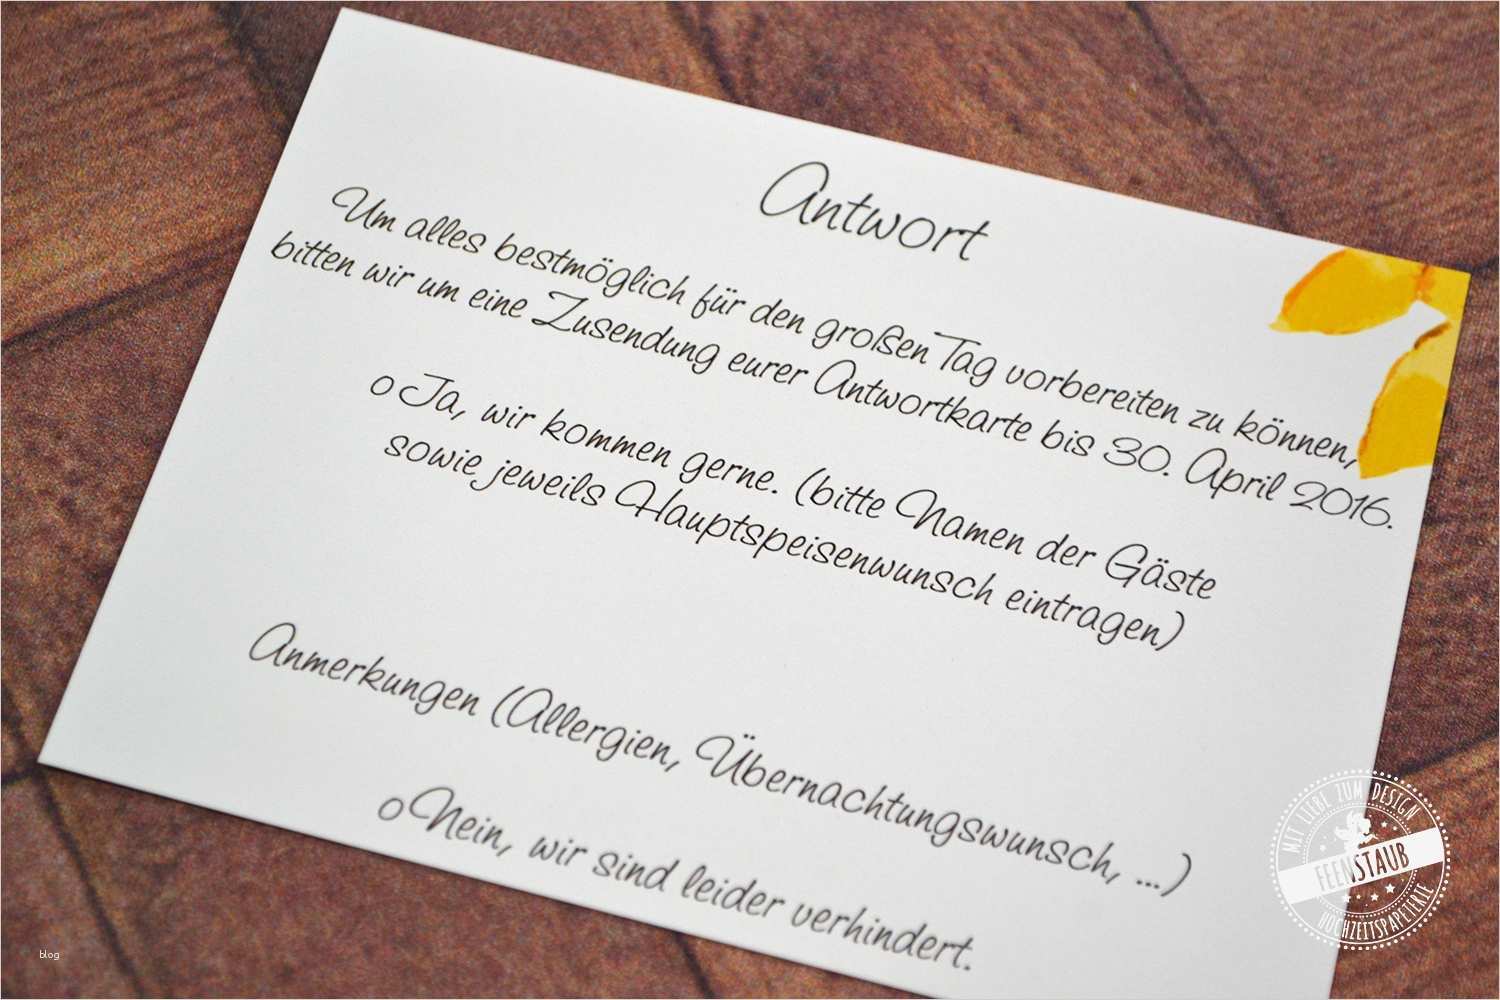 Antwort
Um alles bestmöglich für den großen Tag vorbereiten zu können,
bitten wir um eine Zusendung eurer Antwortkarte bis 30. April 2016.
o Ja, wir kommen gerne. (bitte Namen der Gäste
sowie jeweils Hauptspeisenwunsch eintragen)
Anmerkungen (Allergien, Übernachtungswunsch, ...)
o Nein, wir sind leider verhindert.
MIT LIEBE ZUM DESIGN
FEENSTAUB
HOCHZEITSPAPETERIE
blog